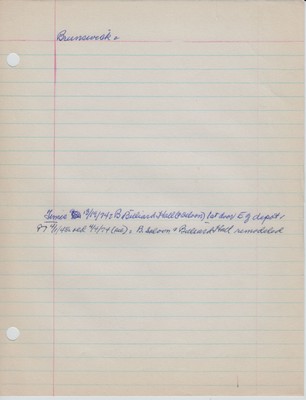 Brunswick.
Times 12/19/74: B Billiard Hall (& saloon) 1st door E of depot,
4/4/74 (ad), B saloon & Billiard Hall remodeled